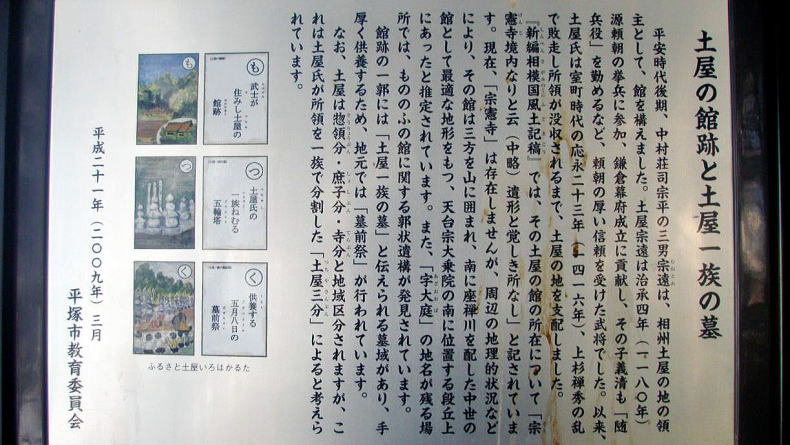 土屋の館跡と土屋一族の墓
平安時代後期、中村荘司宗平の三男宗遠は、相州土屋の地の領
主として、館を構えました。土屋宗遠は治承四年（一一八〇年）
源頼朝の挙兵に参加、鎌倉幕府成立に貢献し、その子義清も「随
兵役」を勤めるなど、頼朝の厚い信頼を受けた武将でした。以来、
土屋氏は室町時代の応永二十三年（一四一六年）、上杉禅秀の乱
で敗走し所領が没収されるまで、土屋の地を支配しました。
『新編相模国風土記稿』では、その土屋の館の所在について「宗
憲寺境内なりと云（中略）遺形と覚しき所なし」と記されていま
す。現在、「宗憲寺」は存在しませんが、周辺の地理的状況など
により、その館は三方を山に囲まれ、南に座禅川を配した中世の
館として最適な地形をもつ、天台宗大乗院の南に位置する段丘上
にあったと推定されています。また、「字大庭」の地名が残る場
所では、もののふの館に関する郭状遺構が発見されています。
館跡の一郭には「土屋一族の墓」と伝えられる墓域があり、手
厚く供養するため、地元では「墓前祭」が行われています。
なお、土屋は惣領分・庶子分・寺分と地域区分されますが、こ
れは土屋氏が所領を一族で分割した「土屋三分」によると考えら
れています。
も
武士が
住みし土屋の
館跡
も
つ
土屋氏の
一族ねむる
五輪塔
つ
く
供養する
五月八日の
墓前祭
く
ふるさと土屋いろはかるた
平成二十一年（二〇〇九年）三月
平塚市教育委員会